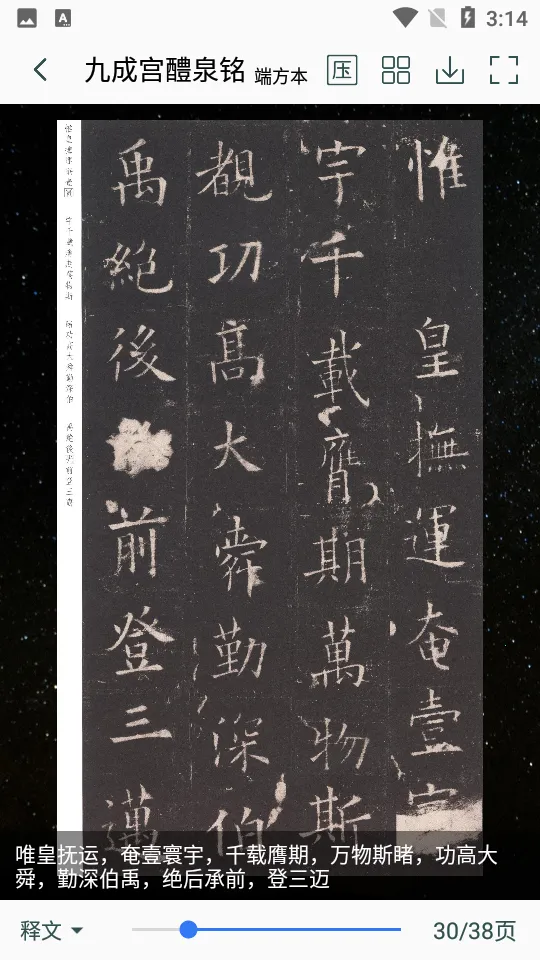 3:14
九成宫醴泉铭 端方本
惟 皇撫運奄壹寰
宇千載膺期萬物斯
覩功高大舜勤深伯
禹絕後 前登三邁
唯皇抚运，奄壹寰宇，千载膺期，万物斯睹，功高大
舜，勤深伯禹，绝后承前，登三迈
释文
30/38页